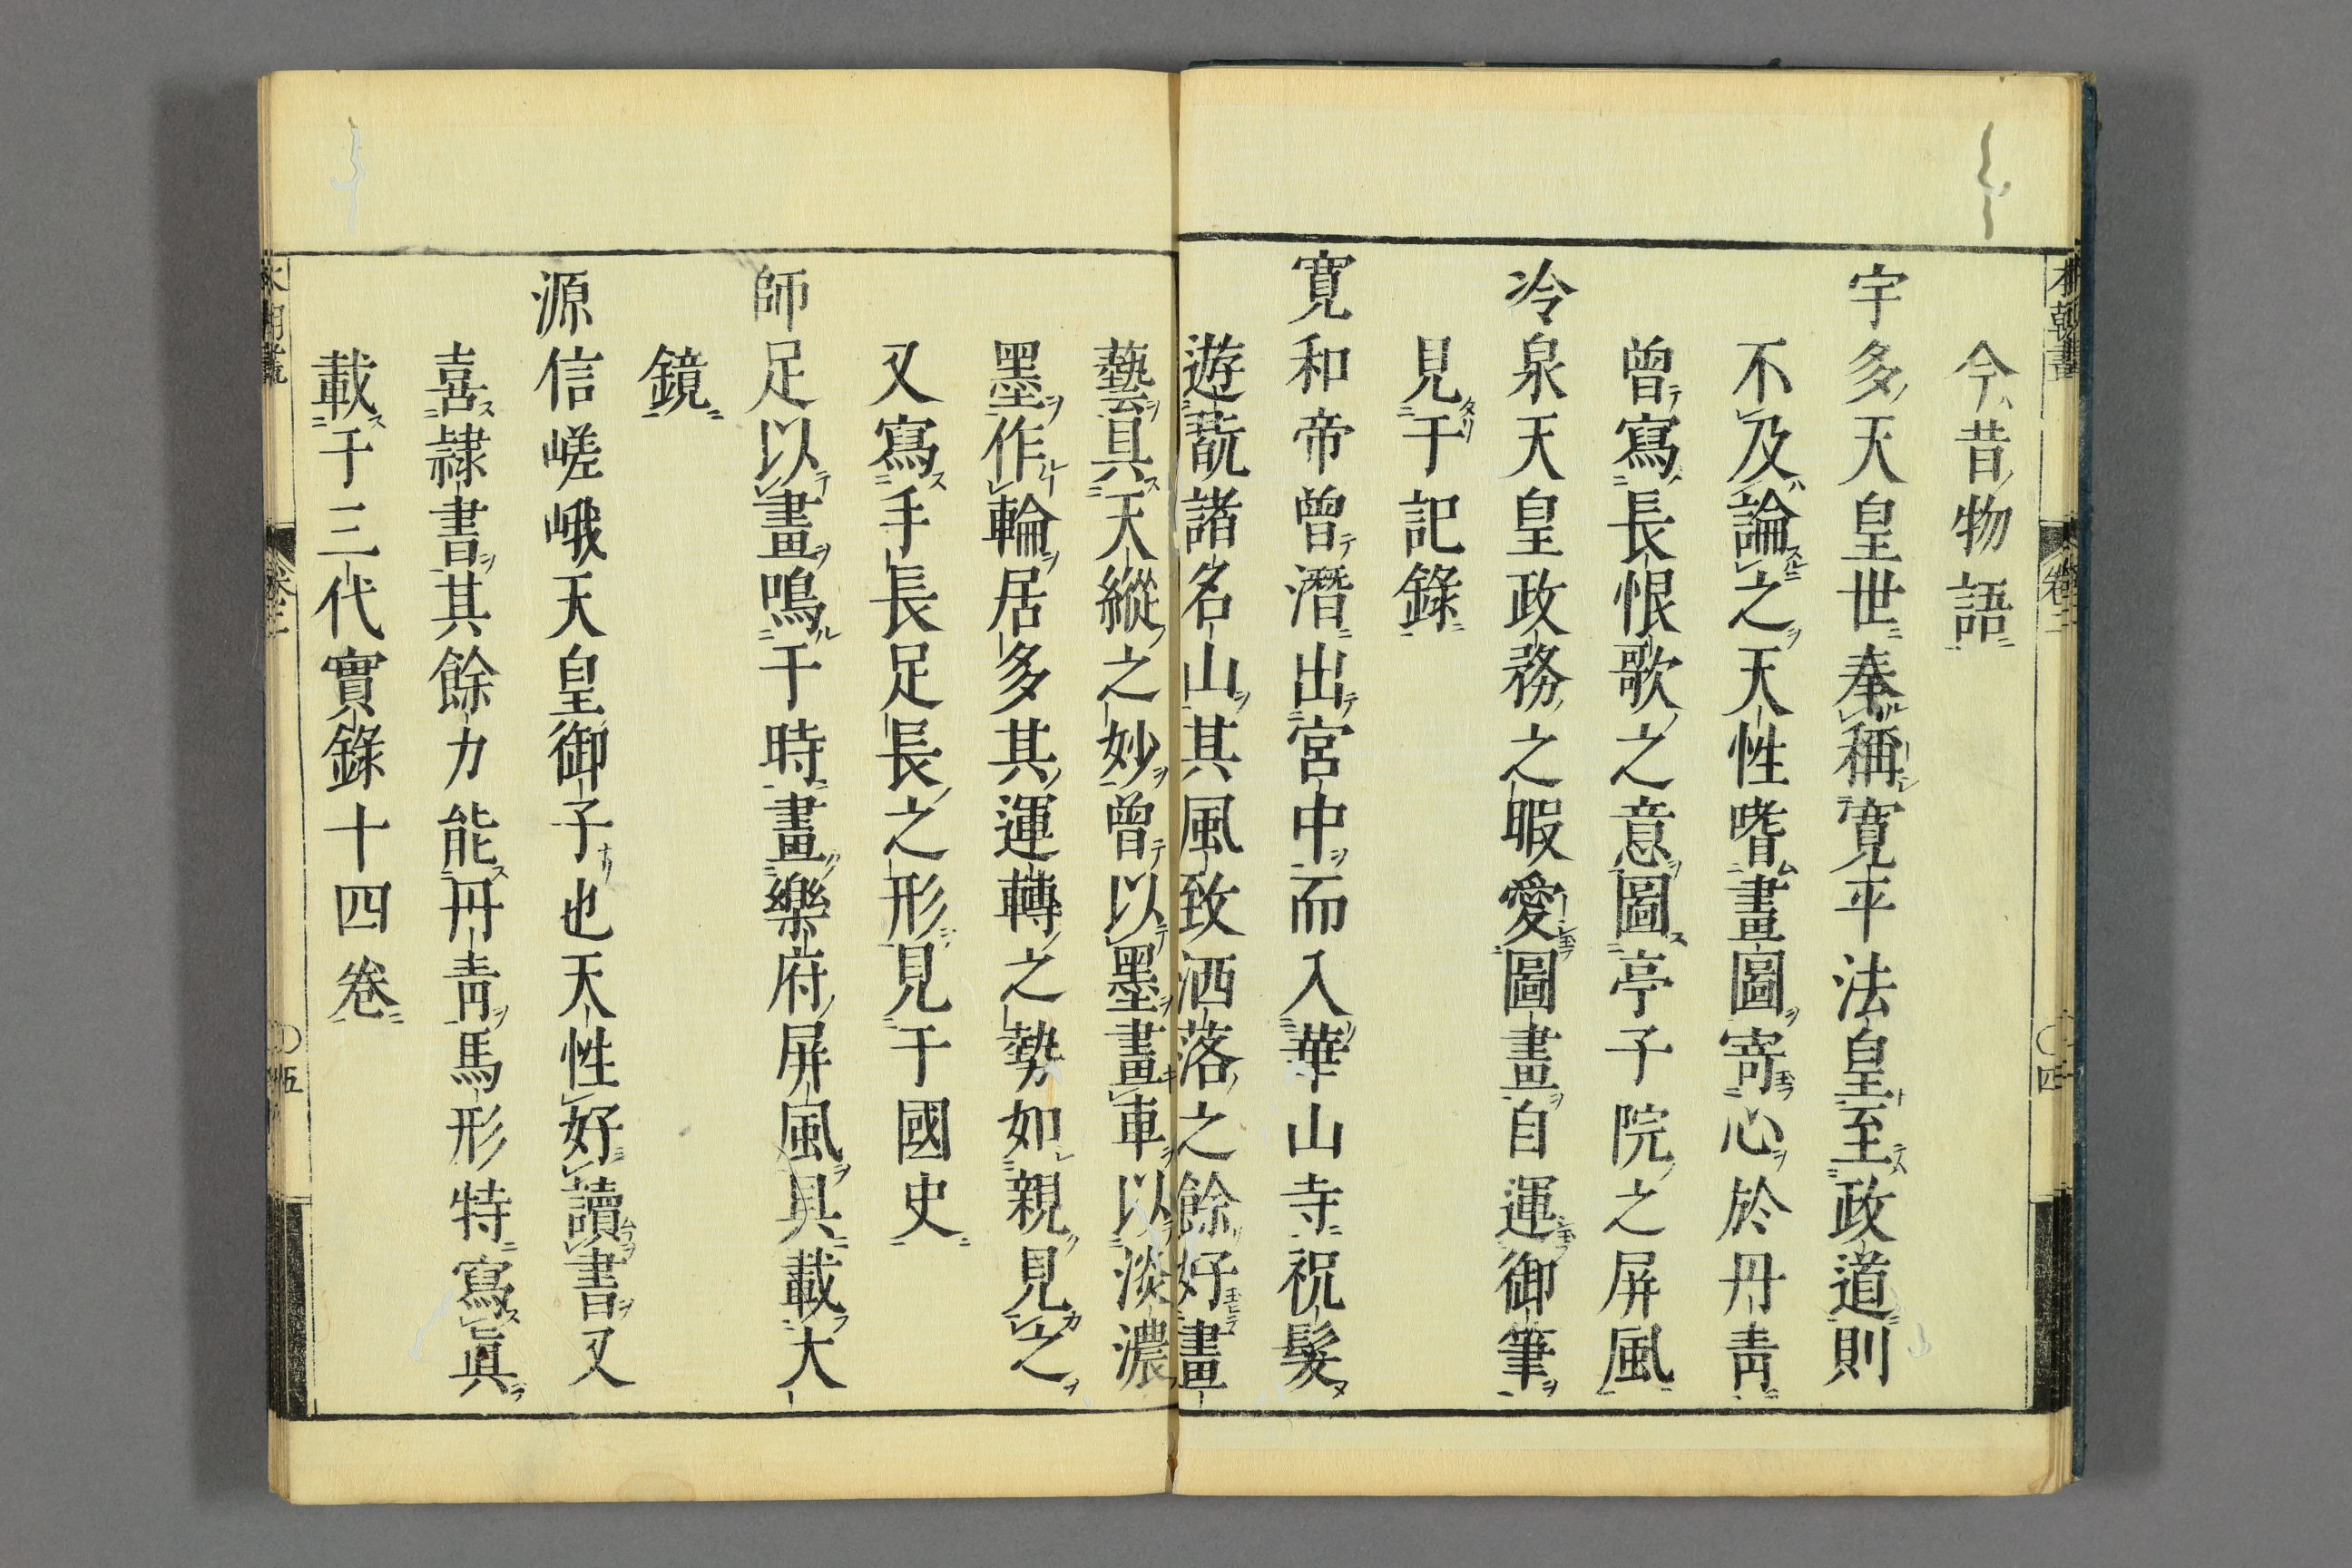 今昔物語
宇多天皇世奉稱寛平法皇至政道則
不及論之天性嗜畫圖寄心於丹青
曾寫長恨歌之意圖亭子院之屏風
冷泉天皇政務之暇愛圖畫自運御筆
見于記錄
寛和帝曾潛出宮中而入華山寺祝髮
遊蓺諸名山其風致洒落之餘好畫
藝具天縱之妙曾以墨畫車以淡濃
墨作輪居多其運轉之勢如親見之
又寫手長足長之形見于國史
師足以畫鳴于時畫樂府屏風具載大
鏡
源信嵯峨天皇御子也天性好讀書又
喜隷書其餘力能丹青馬形特寫眞
載于三代實錄十四卷